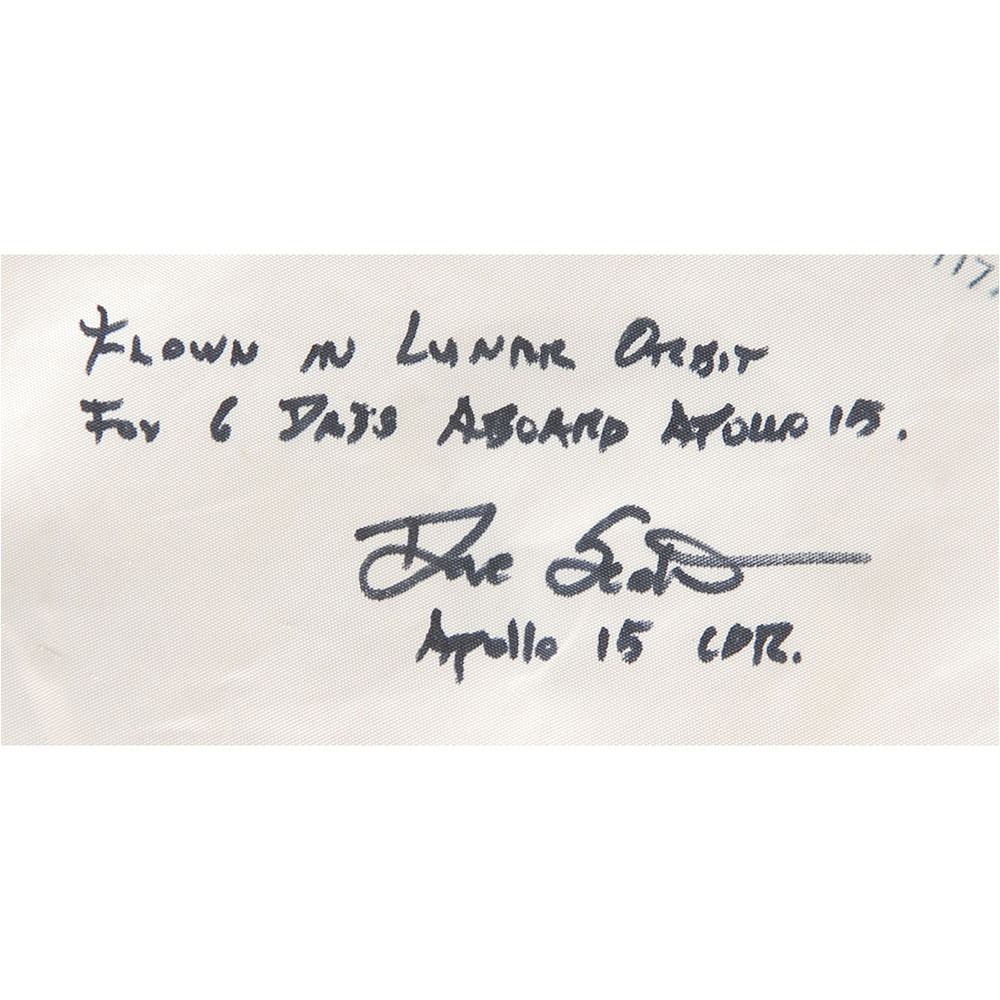 FLOWN IN LUNAR ORBIT
FOR 6 DAYS ABOARD APOLLO 15.
Dave Scott
Apollo 15 CDR.